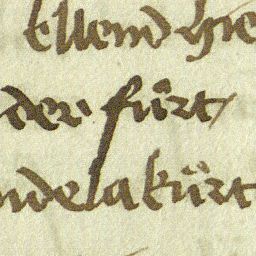 ellend hie
der fürt
ndelakürt